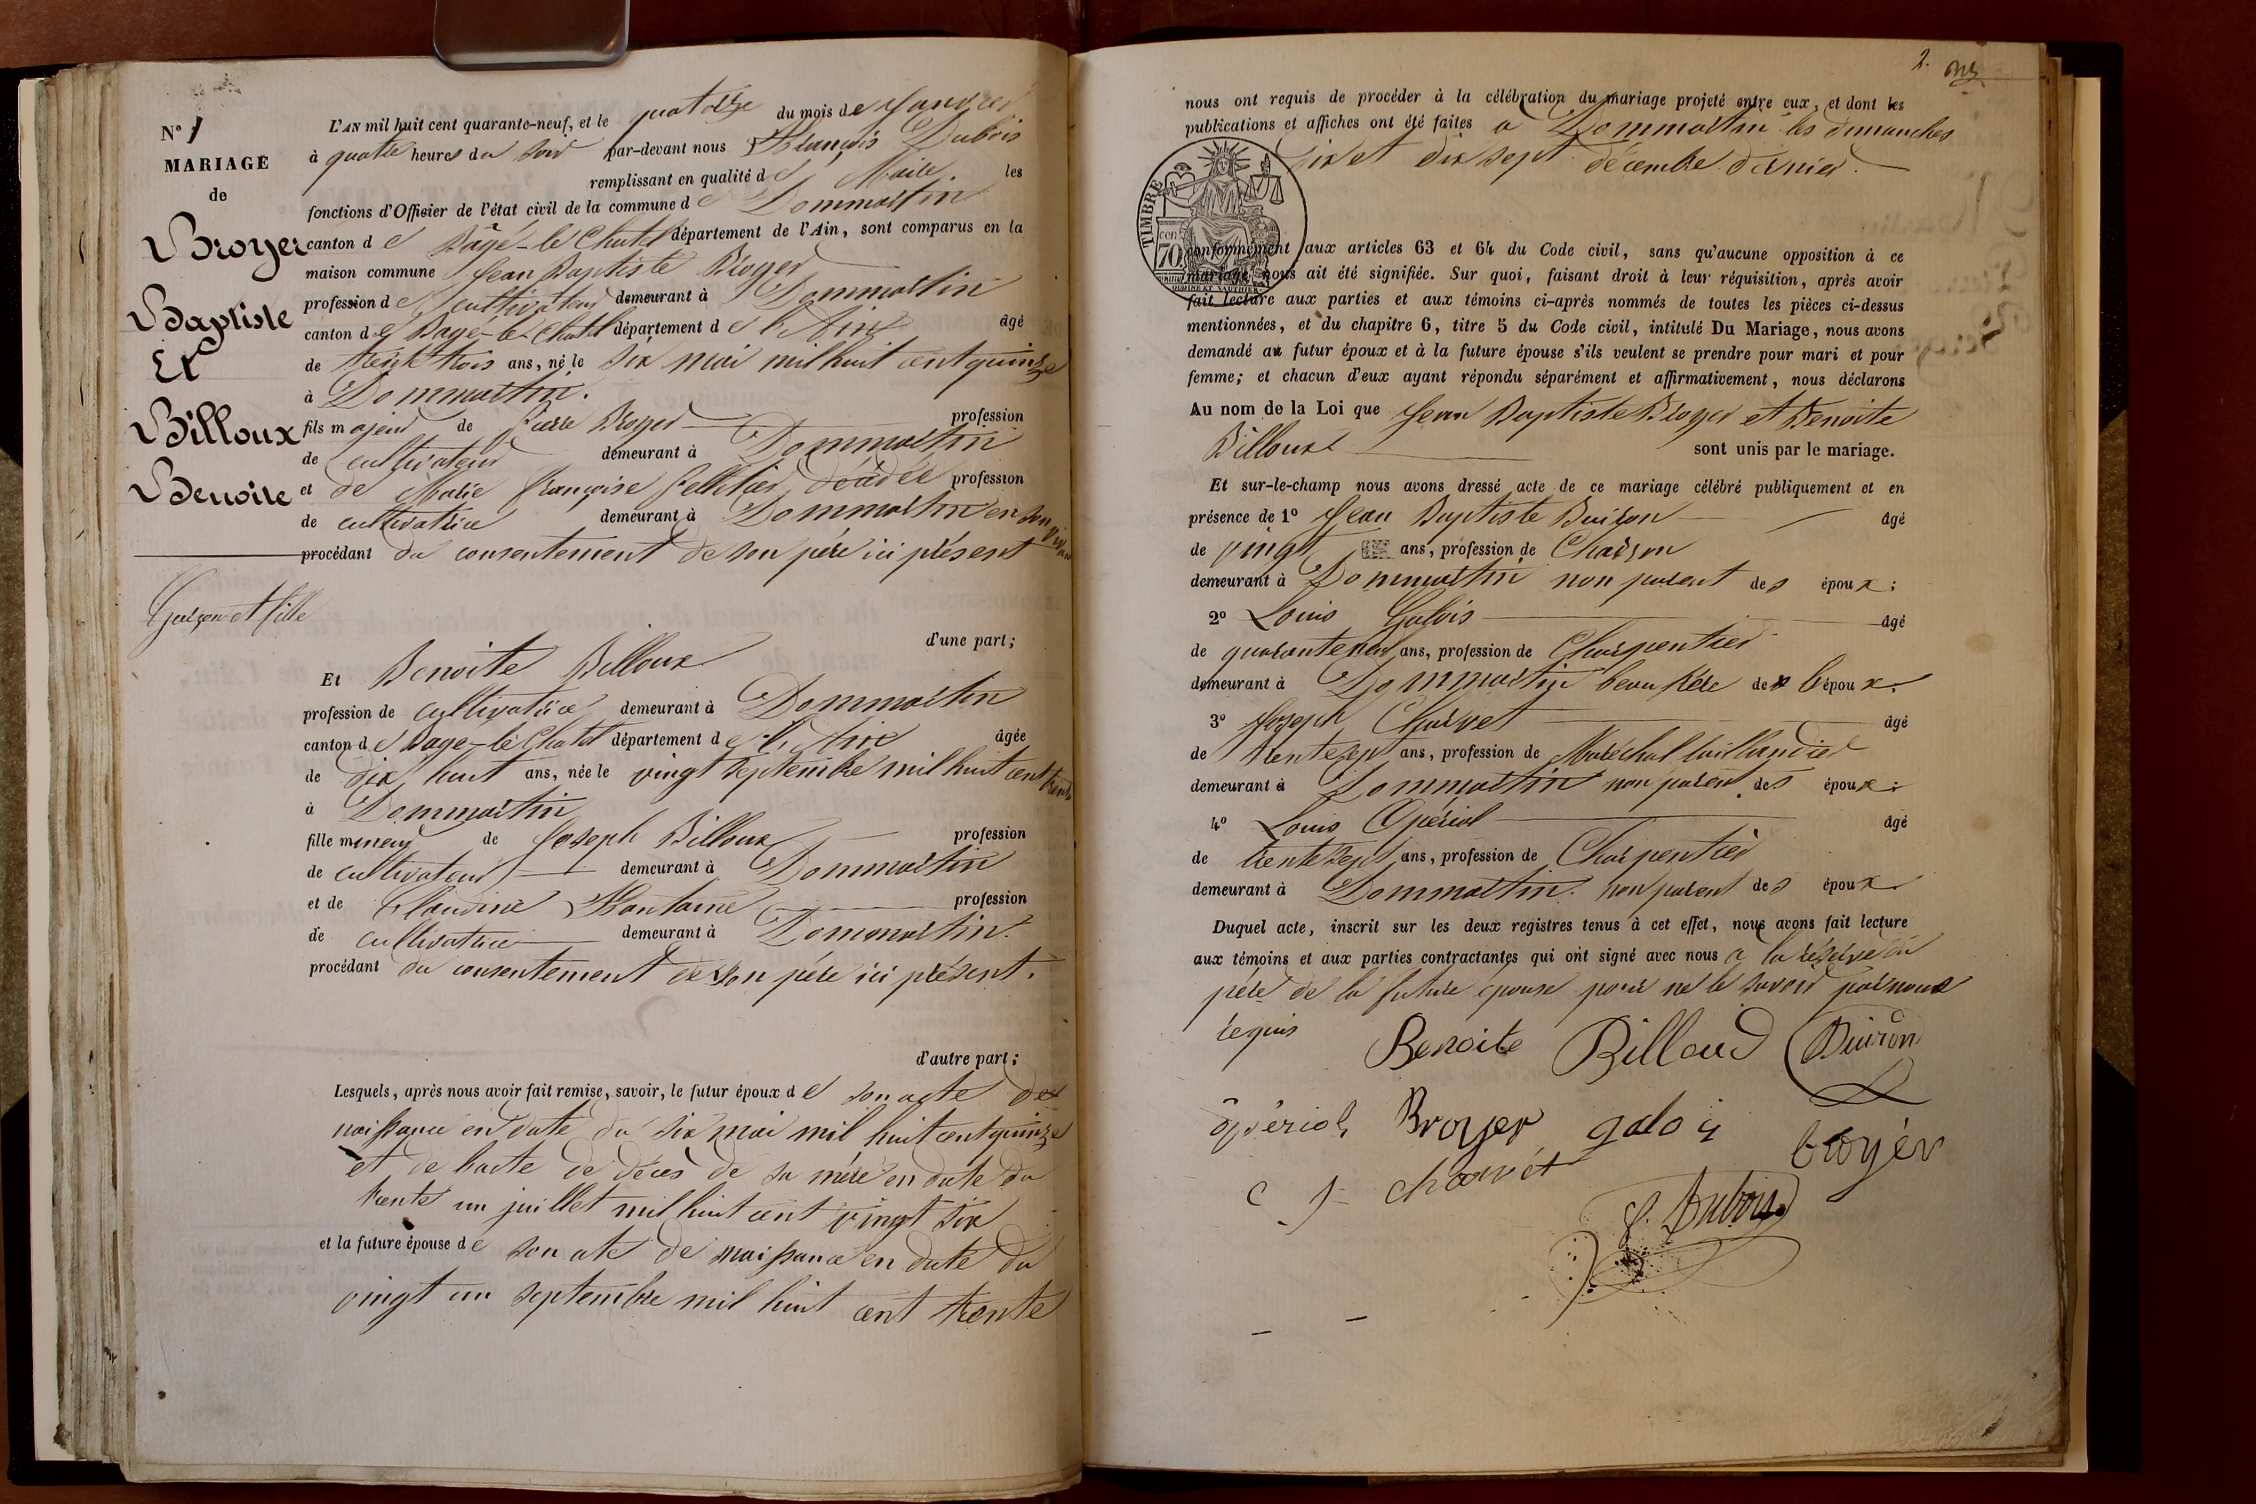 N° 1
MARIAGE
de
Broyer
Baptiste
Et
Billoux
Benoite
Garçon et fille
L'AN mil huit cent quarante-neuf, et le quatorze du mois de Janvier
à quatre heures du soir par-devant nous François Dubois
remplissant en qualité de Maire les
fonctions d'Officier de l'état civil de la commune de Dommartin
canton de Bâgé-le-Chatel département de l'Ain, sont comparus en la
maison commune Jean Baptiste Broyer
profession de cultivateur demeurant à Dommartin
canton de Bage-le-Chatel département de l'Ain âgé
de trente trois ans, né le six mai mil huit cent quinze
à Dommartin.
fils majeur de Pierre Broyer profession
de cultivateur demeurant à Dommartin
et de Marie Françoise Pelletier, décédée profession
de cultivatrice demeurant à Dommartin en son vivant
procédant du consentement de son père ici présent
d'une part;
Et Benoite Billoux
profession de cultivatrice demeurant à Dommartin
canton de Bage-le-Chatel département de l'Ain âgée
de dix huit ans, née le vingt septembre mil huit cent trente
à Dommartin
fille mineur de Joseph Billoux profession
de cultivateur demeurant à Dommartin
et de Claudine Fontaine profession
de cultivatrice demeurant à Dommartin.
procédant du consentement de son père ici présent.
d'autre part;
Lesquels, après nous avoir fait remise, savoir, le futur époux de son acte de
naissance en date du six mai mil huit cent quinze
et de l'acte de décès de sa mère en date du
trente un juillet mil huit cent vingt six
et la future épouse de son ate de naissance en date du
vingt un septembre mil huit cent trente
2.
nous ont requis de procéder à la célébration du mariage projeté entre eux, et dont les
publications et affiches ont été faites a Dommartin les dimanches
dix et dix sept décembre dernier.
TIMBRE
70
conformément aux articles 63 et 64 du Code civil, sans qu'aucune opposition à ce
mariage nous ait été signifiée. Sur quoi, faisant droit à leur réquisition, après avoir
fait lecture aux parties et aux témoins ci-après nommés de toutes les pièces ci-dessus
mentionnées, et du chapitre 6, titre 5 du Code civil, intitulé Du Mariage, nous avons
demandé au futur époux et à la future épouse s'ils veulent se prendre pour mari et pour
femme; et chacun d'eux ayant répondu séparément et affirmativement, nous déclarons
Au nom de la Loi que Jean Baptiste Broyer et Benoite
Billoux sont unis par le mariage.
Et sur-le-champ nous avons dressé acte de ce mariage célébré publiquement et en
présence de 1° Jean Baptiste Buiron âgé
de vingt ans, profession de Charron
demeurant à Dommartin non parent des époux;
2° Louis Galois âgé
de quarante ans, profession de Charpentier
demeurant à Dommartin beau frère de l'époux;
3° Joseph Charvet âgé
de trente sept ans, profession de Maréchal taillandier
demeurant à Dommartin non parent des époux;
4° Louis Apériol âgé
de trente sept ans, profession de Charpentier
demeurant à Dommartin. non parent des époux
Duquel acte, inscrit sur les deux registres tenus à cet effet, nous avons fait lecture
aux témoins et aux parties contractantes qui ont signé avec nous a la réserve du
père de la future epouse pour ne le savoir par nous
requis
Benoite Billoud Buiron
apériol Broyer galois broyér
C J charvét
f. Dubois